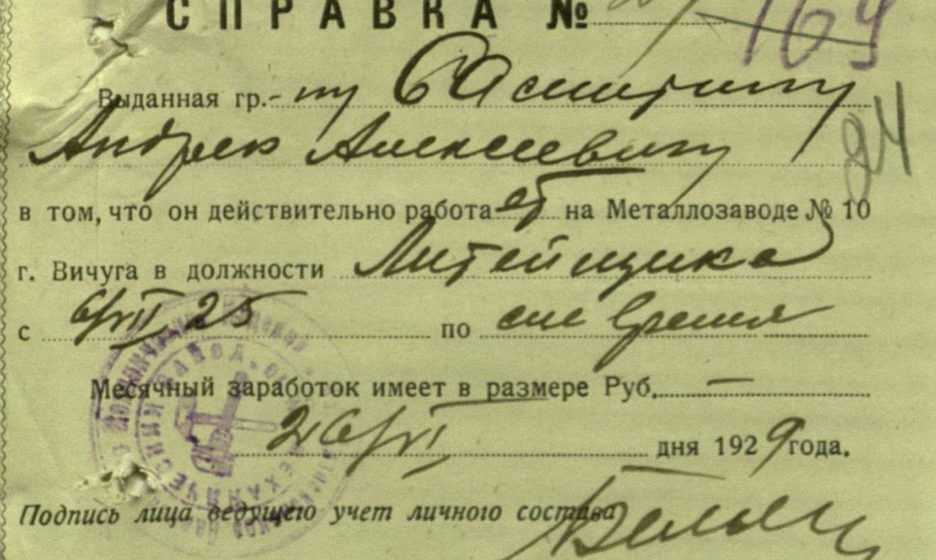 СПРАВКА №
169
Выданная гр.-ну
Андрею Алексеевичу
24
в том, что он действительно работает на Металлозаводе № 10
г. Вичуга в должности Литейщика
с 6/VII 25 по сие время
Месячный заработок имеет в размере Руб. —
26/VI дня 1929 года.
Подпись лица ведущего учет личного состава